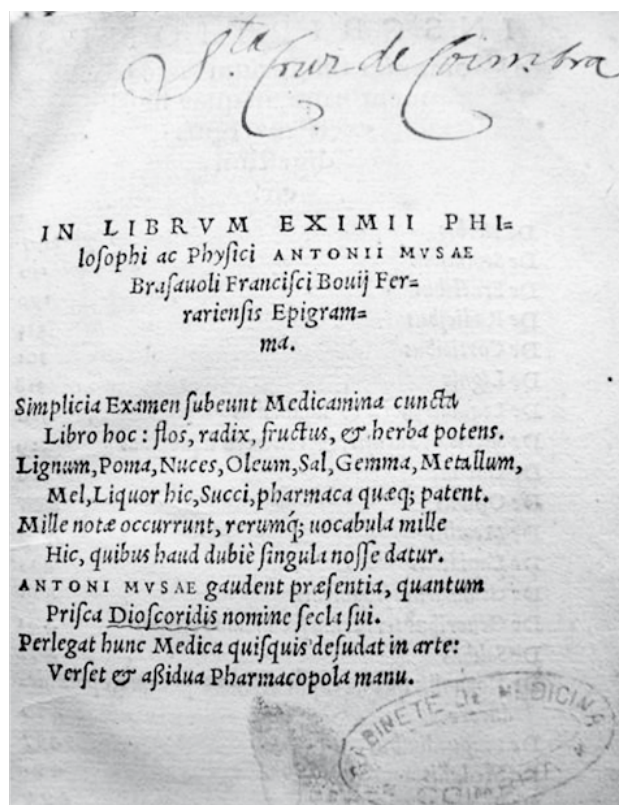 Sta Cruz de Coimbra
IN LIBRVM EXIMII PHI=
losophi ac Physici ANTONII MVSAE
Brasauoli Francisci Bouij Fer=
rariensis Epigram=
ma.
Simplicia Examen subeunt Medicamina cuncta
Libro hoc: flos, radix, fructus, & herba potens.
Lignum, Poma, Nuces, Oleum, Sal, Gemma, Metallum,
Mel, Liquor hic, Succi, pharmaca quæq; patent.
Mille notæ occurrunt, rerumq́; uocabula mille
Hic, quibus haud dubiè singula nosse datur.
ANTONI MVSAE gaudent præsentia, quantum
Prisca Dioscoridis nomine secla sui.
Perlegat hunc Medica quisquis desudat in arte:
Verset & aßidua Pharmacopola manu.
GABINETE DE MEDICINA